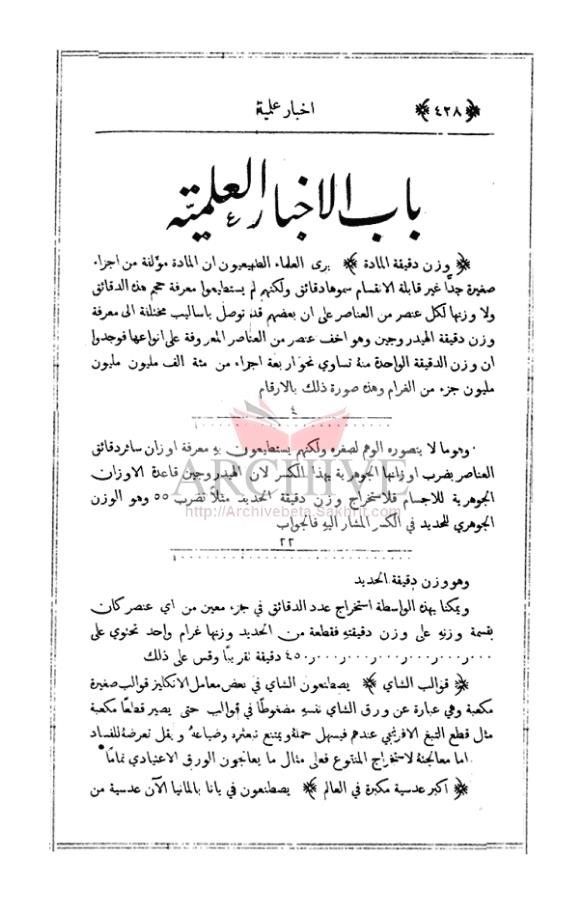 ﴿٤٢٨﴾ اخبار علمية
باب الاخبار العلميّة
﴿ وزن دقيقة المادة ﴾ يرى العلماء الطبيعيون ان المادة مؤلفة من اجزاء
صغيرة جدًّا غير قابلة الانقسام سموها دقائق ولكنهم لم يستطيعوا معرفة حجم هذه الدقائق
ولا وزنها لكل عنصر من العناصر على ان بعضهم قد توصل باساليب مختلفة الى معرفة
وزن دقيقة الهيدروجين وهو اخف عنصر من العناصر المعروفة على انواعها فوجدوا
ان وزن الدقيقة الواحدة منهُ تساوي نحو اربعة اجزاء من مئة الف مليون مليون
مليون جزء من الغرام وهذه صورة ذلك بالارقام
٤
وهو ما لا يتصوره الوهم لصغره ولكنهم يستطيعون به معرفة اوزان سائر دقائق
العناصر بضرب اوزانها الجوهرية بهذا الكسر لان الهيدروجين قاعدة الاوزان
الجوهرية للاجسام فلاستخراج وزن دقيقة الحديد مثلاً تضرب ٥٥ وهو الوزن
الجوهري للحديد في الكسر المشار اليه فالجواب
٢٢
ARCHIVE
http://Archivebeta.Sakhrit.com
وهو وزن دقيقة الحديد
ويمكننا بهذه الواسطة استخراج عدد الدقائق في جزء معين من اي عنصر كان
بقسمة وزنه على وزن دقيقته فقطعة من الحديد وزنها غرام واحد تحتوي على
دقيقة تقريبًا وقس على ذلك
﴿ قوالب الشاي ﴾ يصطنعون الشاي في بعض معامل الانكليز قوالب صغيرة
مكعبة وهي عبارة عن ورق الشاي نفسه مضغوطًا في قوالب حتى يصير قطعًا مكعبة
مثل قطع التبغ الافرنجي عندهم فيسهل حملهُ ويمتنع تبعثره وضياعهُ ويقل تعرضهُ للفساد
اما معالجتهُ لاستخراج المنقوع فعلى مثال ما يعالجون الورق الاعتيادي تمامًا
﴿ اكبر عدسية مكبرة في العالم ﴾ يصطنعون في يانا بالمانيا الآن عدسية من